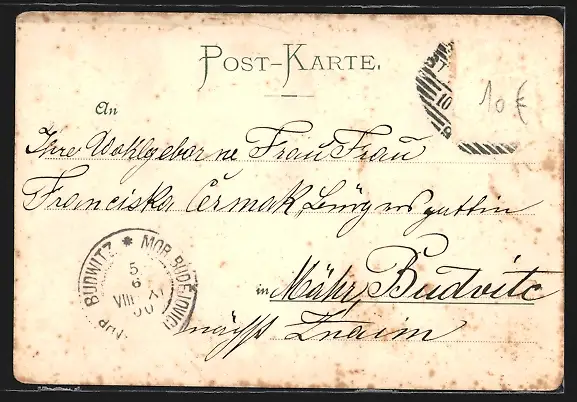 POST-KARTE.
10 €
10
An
Ihre Wohlgeborne Frau Frau
Franciska Čermak, Bürgersgattin
BUDWITZ * MOR. BUDĚJOVICE
5
6
VIII XI
00
in Mähr. Budvitz
nächst Znaim